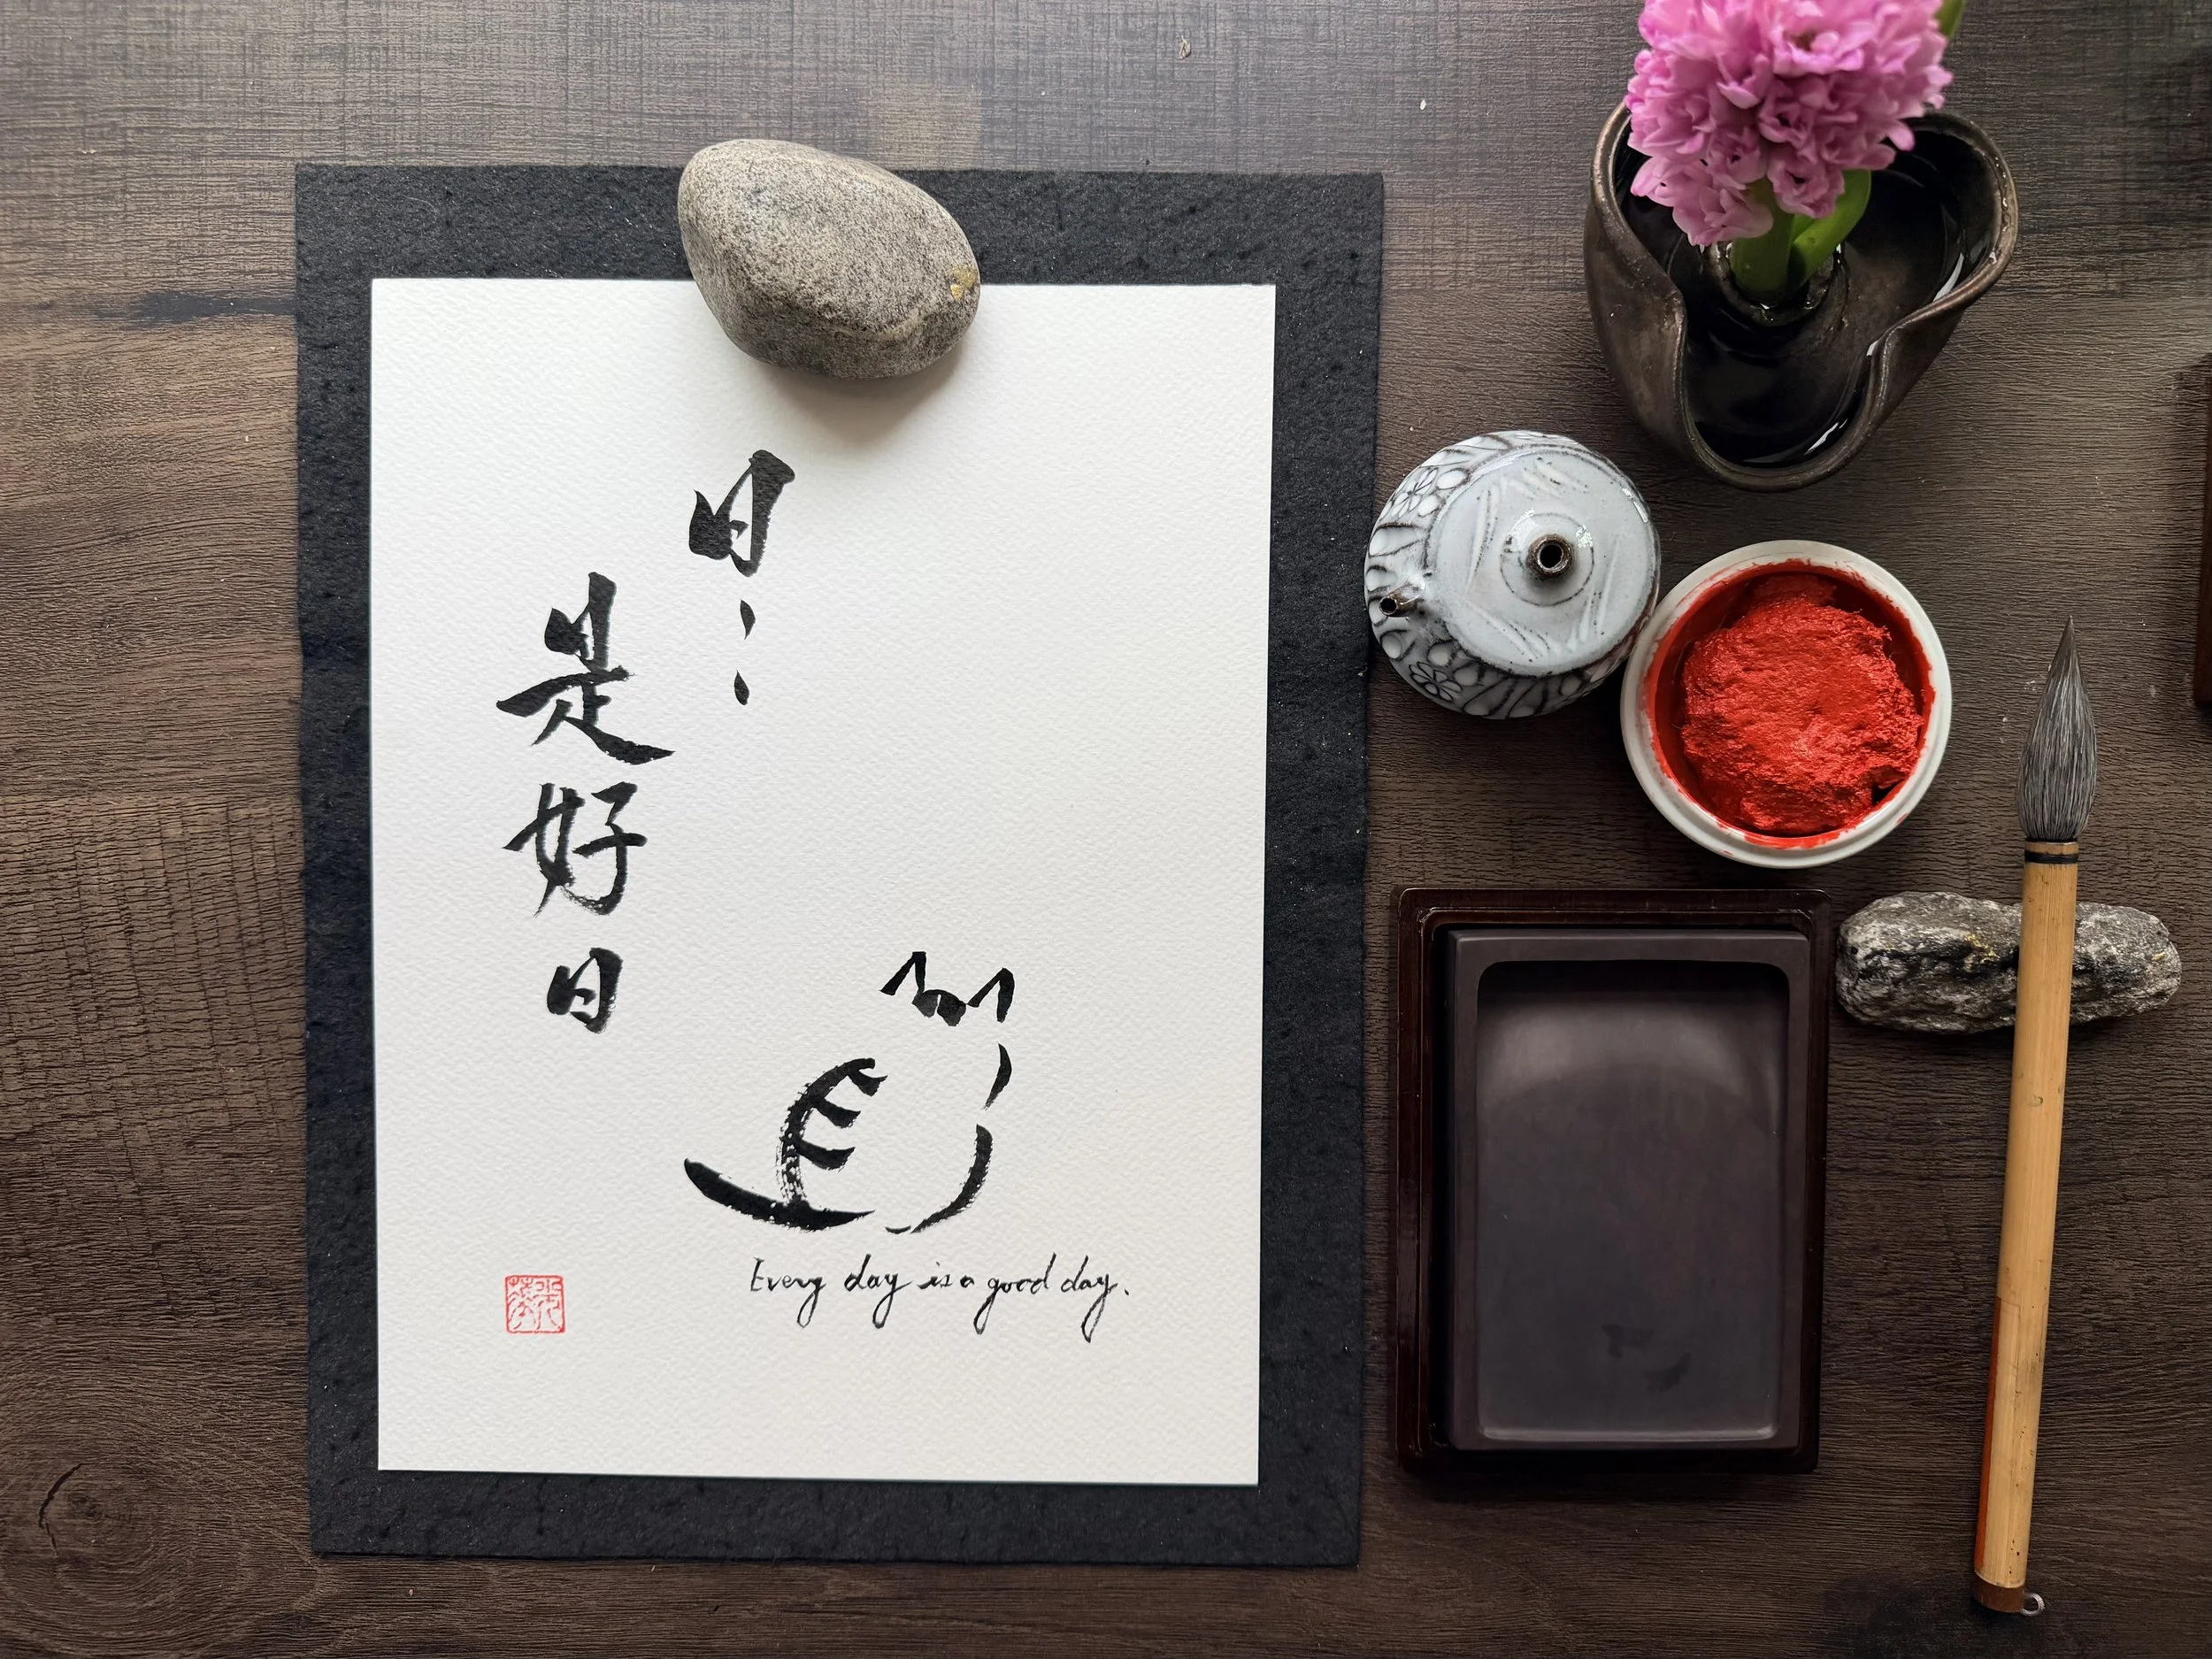 日〻
是好日
Every day is a good day.